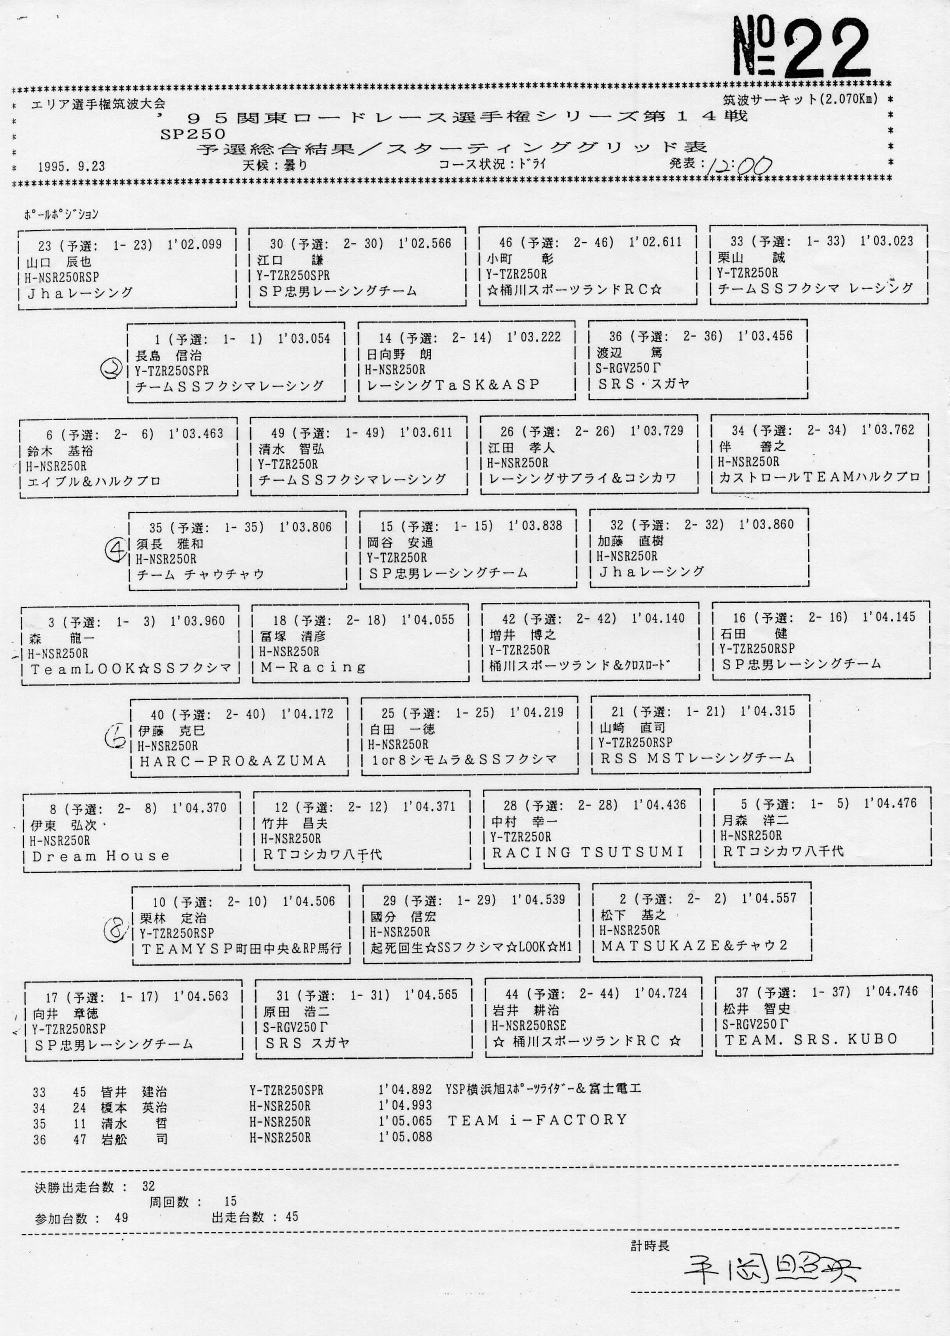 No 22
エリア選手権筑波大会 筑波サーキット(2.070Km)
'95関東ロードレース選手権シリーズ第14戦
SP250
予選総合結果/スターティンググリッド表
1995. 9.23 天候:曇り コース状況:ドライ 発表:12:00
ポールポジション
23 (予選: 1- 23) 1'02.099 30 (予選: 2- 30) 1'02.566 46 (予選: 2- 46) 1'02.611 33 (予選: 1- 33) 1'03.023
山口 辰也 江口 謙 小町 彰 栗山 誠
H-NSR250RSP Y-TZR250SPR Y-TZR250R Y-TZR250R
Jhaレーシング SP忠男レーシングチーム ☆桶川スポーツランドRC☆ チームSSフクシマ レーシング
1 (予選: 1- 1) 1'03.054 14 (予選: 2- 14) 1'03.222 36 (予選: 2- 36) 1'03.456
② 長島 信治 日向野 朗 渡辺 篤
Y-TZR250SPR H-NSR250R S-RGV250Γ
チームSSフクシマレーシング レーシングTaSK&ASP SRS・スガヤ
6 (予選: 2- 6) 1'03.463 49 (予選: 1- 49) 1'03.611 26 (予選: 2- 26) 1'03.729 34 (予選: 2- 34) 1'03.762
鈴木 基裕 清水 智弘 江田 孝人 伴 善之
H-NSR250R Y-TZR250R H-NSR250R H-NSR250R
エイブル&ハルクプロ チームSSフクシマレーシング レーシングサプライ&コシカワ カストロールTEAMハルクプロ
35 (予選: 1- 35) 1'03.806 15 (予選: 1- 15) 1'03.838 32 (予選: 2- 32) 1'03.860
④ 須長 雅和 岡谷 安通 加藤 直樹
H-NSR250R Y-TZR250R H-NSR250R
チーム チャウチャウ SP忠男レーシングチーム Jhaレーシング
3 (予選: 1- 3) 1'03.960 18 (予選: 2- 18) 1'04.055 42 (予選: 2- 42) 1'04.140 16 (予選: 2- 16) 1'04.145
森 龍一 冨塚 清彦 増井 博之 石田 健
H-NSR250R H-NSR250R Y-TZR250R Y-TZR250RSP
TeamLOOK☆SSフクシマ M-Racing 桶川スポーツランド&クロスロード SP忠男レーシングチーム
40 (予選: 2- 40) 1'04.172 25 (予選: 1- 25) 1'04.219 21 (予選: 1- 21) 1'04.315
⑥ 伊藤 克巳 白田 一徳 山崎 直司
H-NSR250R H-NSR250R Y-TZR250RSP
HARC-PRO&AZUMA 1or8シモムラ&SSフクシマ RSS MSTレーシングチーム
8 (予選: 2- 8) 1'04.370 12 (予選: 2- 12) 1'04.371 28 (予選: 2- 28) 1'04.436 5 (予選: 1- 5) 1'04.476
伊東 弘次 竹井 昌夫 中村 幸一 月森 洋二
H-NSR250R H-NSR250R Y-TZR250R H-NSR250R
Dream House RTコシカワ八千代 RACING TSUTSUMI RTコシカワ八千代
10 (予選: 2- 10) 1'04.506 29 (予選: 1- 29) 1'04.539 2 (予選: 2- 2) 1'04.557
⑧ 栗林 定治 國分 信宏 松下 基之
Y-TZR250RSP H-NSR250R H-NSR250R
TEAMYSP町田中央&RP馬行 起死回生☆SSフクシマ☆LOOK☆M1 MATSUKAZE&チャウ2
17 (予選: 1- 17) 1'04.563 31 (予選: 1- 31) 1'04.565 44 (予選: 2- 44) 1'04.724 37 (予選: 1- 37) 1'04.746
向井 章徳 原田 浩二 岩井 耕治 松井 智史
Y-TZR250RSP S-RGV250Γ H-NSR250RSE S-RGV250Γ
SP忠男レーシングチーム SRS スガヤ ☆ 桶川スポーツランドRC ☆ TEAM. SRS. KUBO
33 45 皆井 建治 Y-TZR250SPR 1'04.892 YSP横浜旭スポーツライダー&富士電工
34 24 榎本 英治 H-NSR250R 1'04.993
35 11 清水 哲 H-NSR250R 1'05.065 TEAM i-FACTORY
36 47 岩舩 司 H-NSR250R 1'05.088
決勝出走台数: 32
周回数: 15
参加台数: 49 出走台数: 45
計時長
平岡照央